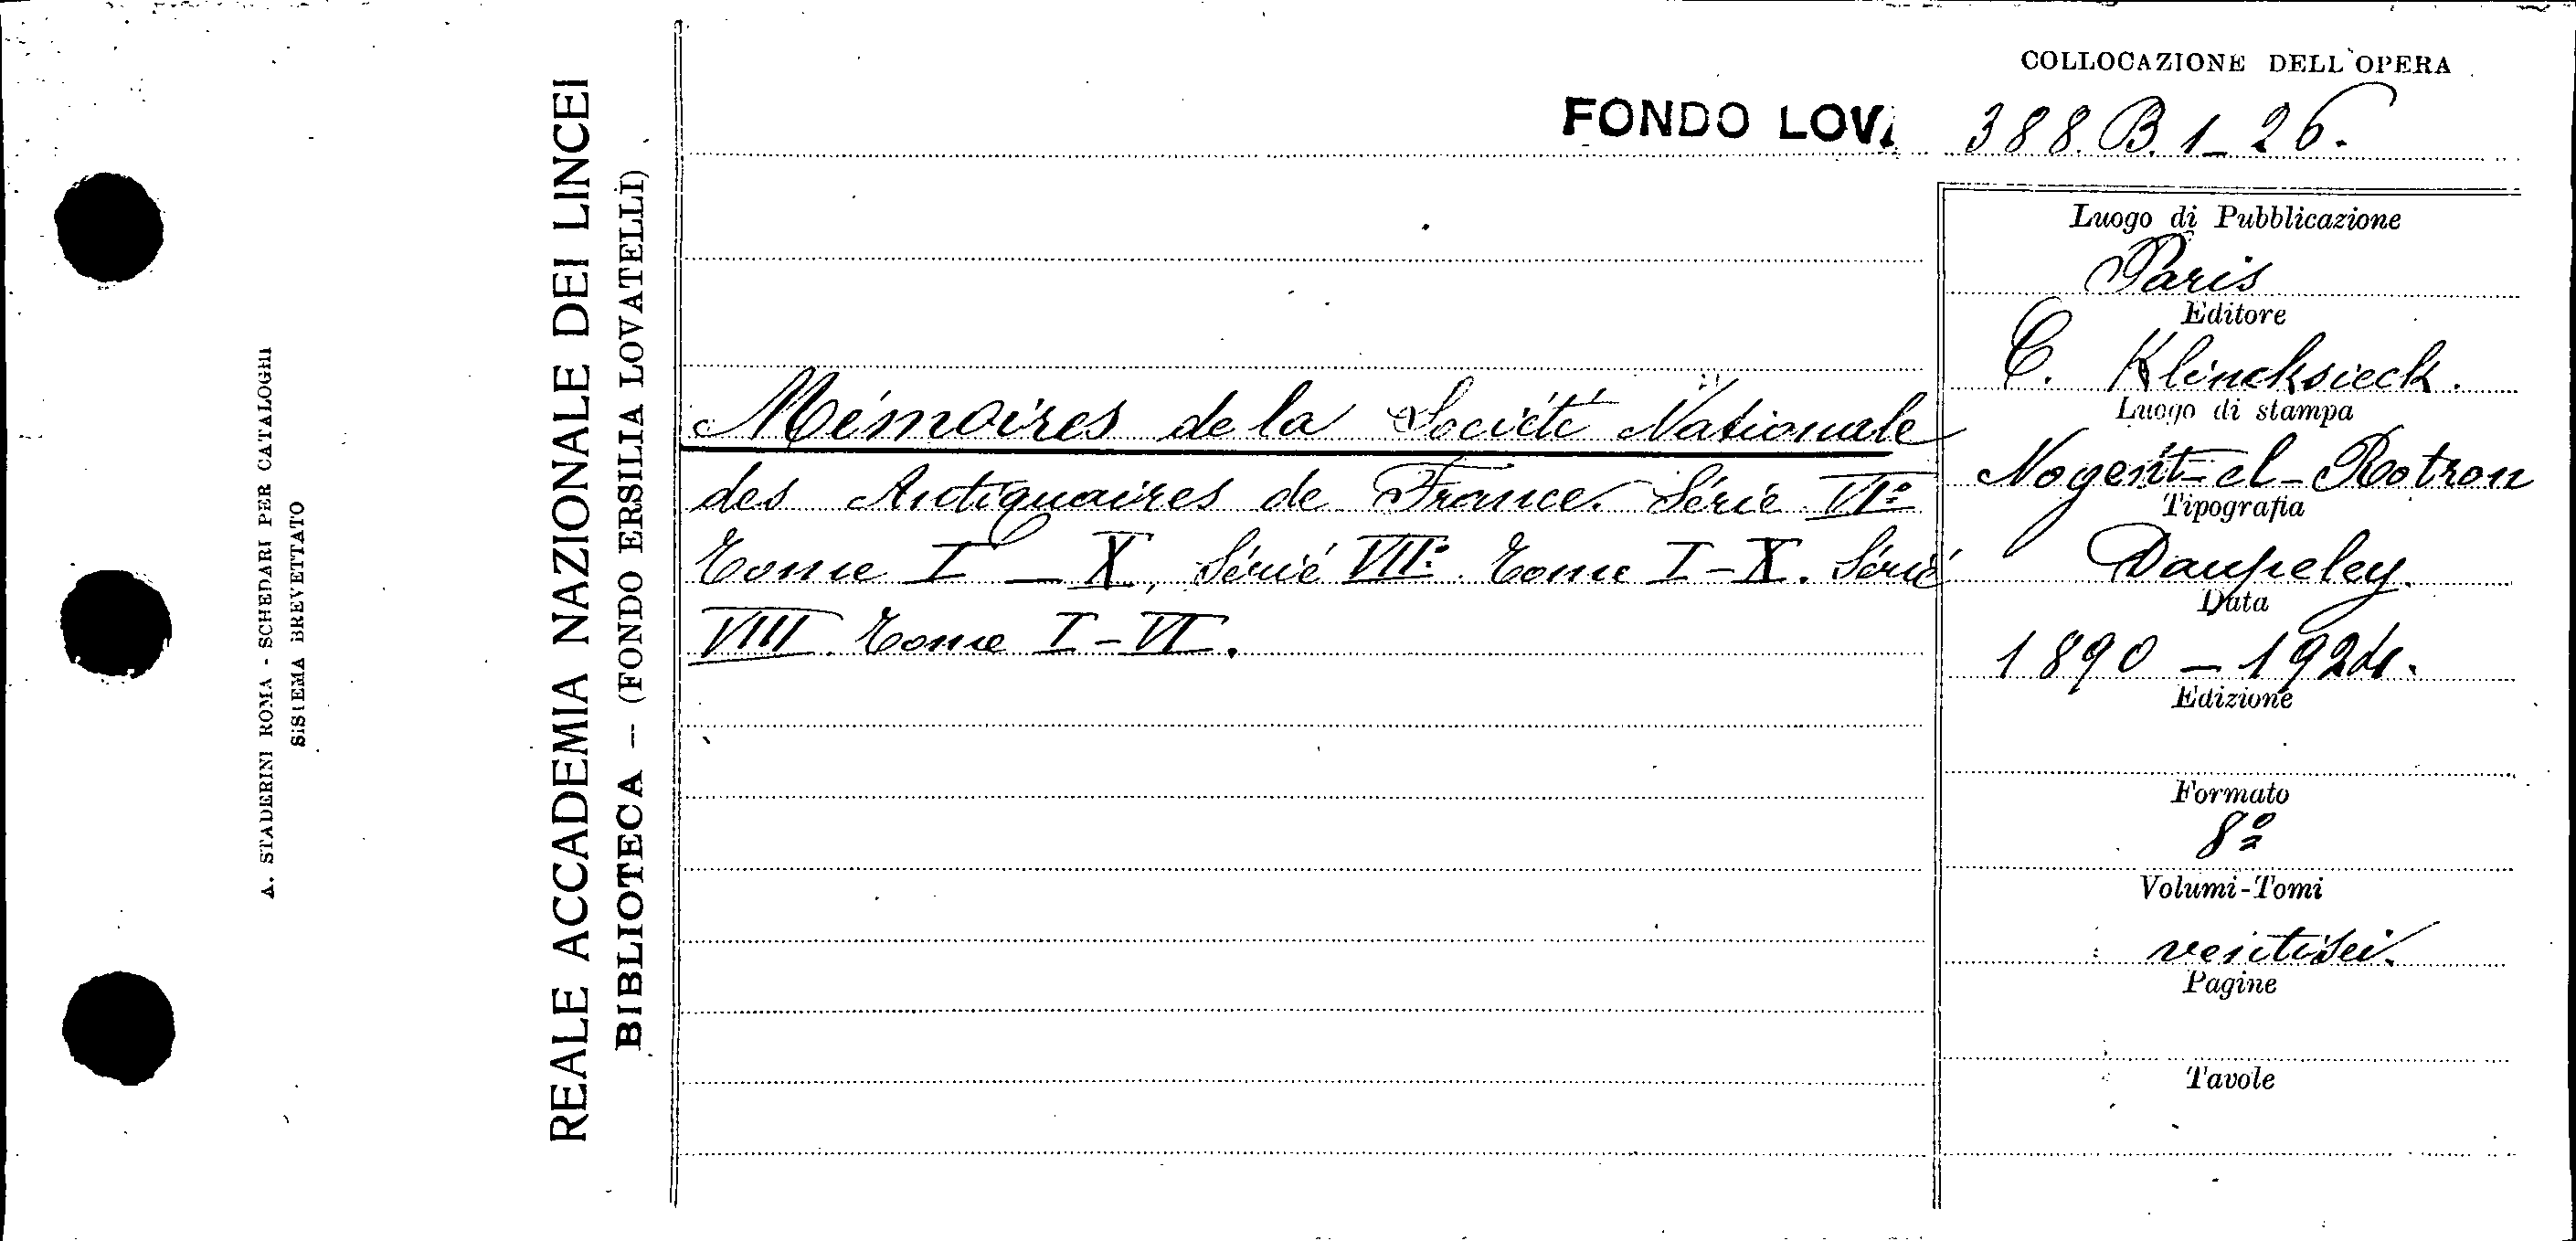 COLLOCAZIONE DELL'OPERA
FONDO LOV. 388. B. 1_26.
A. STADERINI ROMA - SCHEDARI PER CATALOGHI
SISTEMA BREVETTATO
REALE ACCADEMIA NAZIONALE DEI LINCEI
BIBLIOTECA – (FONDO ERSILIA LOVATELLI)
Mémoires de la Société Nationale
des Antiquaires de France. Série VIº
Tome I – X, Série VIIº. Tome I - X. Série
VIII. Tome I - VI.
Luogo di Pubblicazione
Paris
Editore
C. Klincksieck.
Luogo di stampa
Nogent-el-Rotron
Tipografia
Daupeley.
Data
1890 – 1924.
Edizione
Formato
8º
Volumi-Tomi
ventisei.
Pagine
Tavole